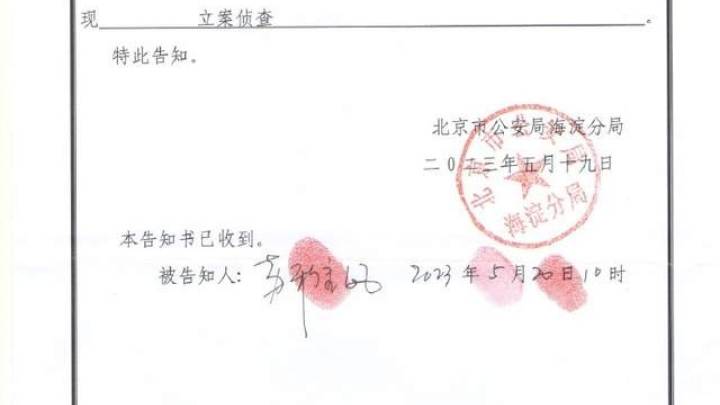 现 立案侦查 。
特此告知。
北京市公安局海淀分局
二〇二三年五月十九日
北京市公安局
海淀分局
本告知书已收到。
被告知人： 2023年5月20日10时